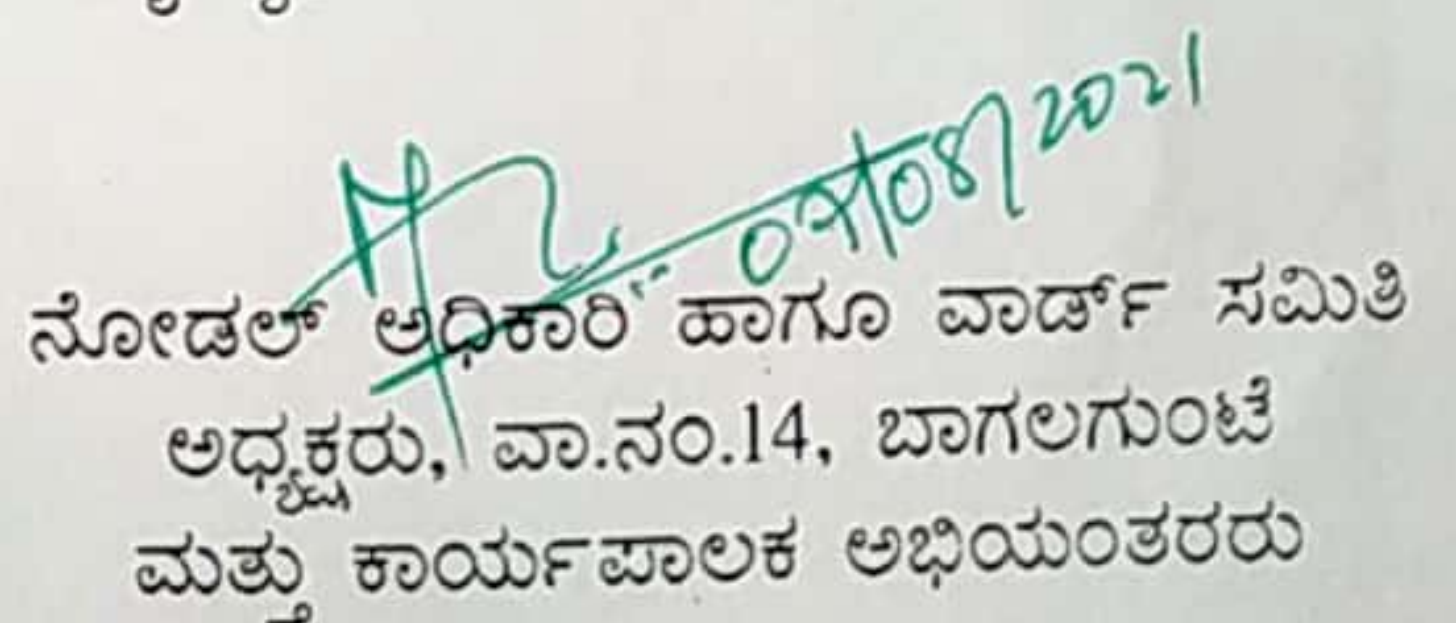 08/2021
ನೋಡಲ್ ಅಧಿಕಾರಿ ಹಾಗೂ ವಾರ್ಡ್ ಸಮಿತಿ
ಅಧ್ಯಕ್ಷರು, ವಾ.ನಂ.14, ಬಾಗಲಗುಂಟೆ
ಮತ್ತು ಕಾರ್ಯಪಾಲಕ ಅಭಿಯಂತರರು